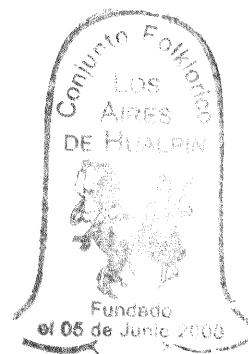 Conjunto Folklorico
LOS
AIRES
DE HUALPIN
Fundado
el 05 de Junio 2000